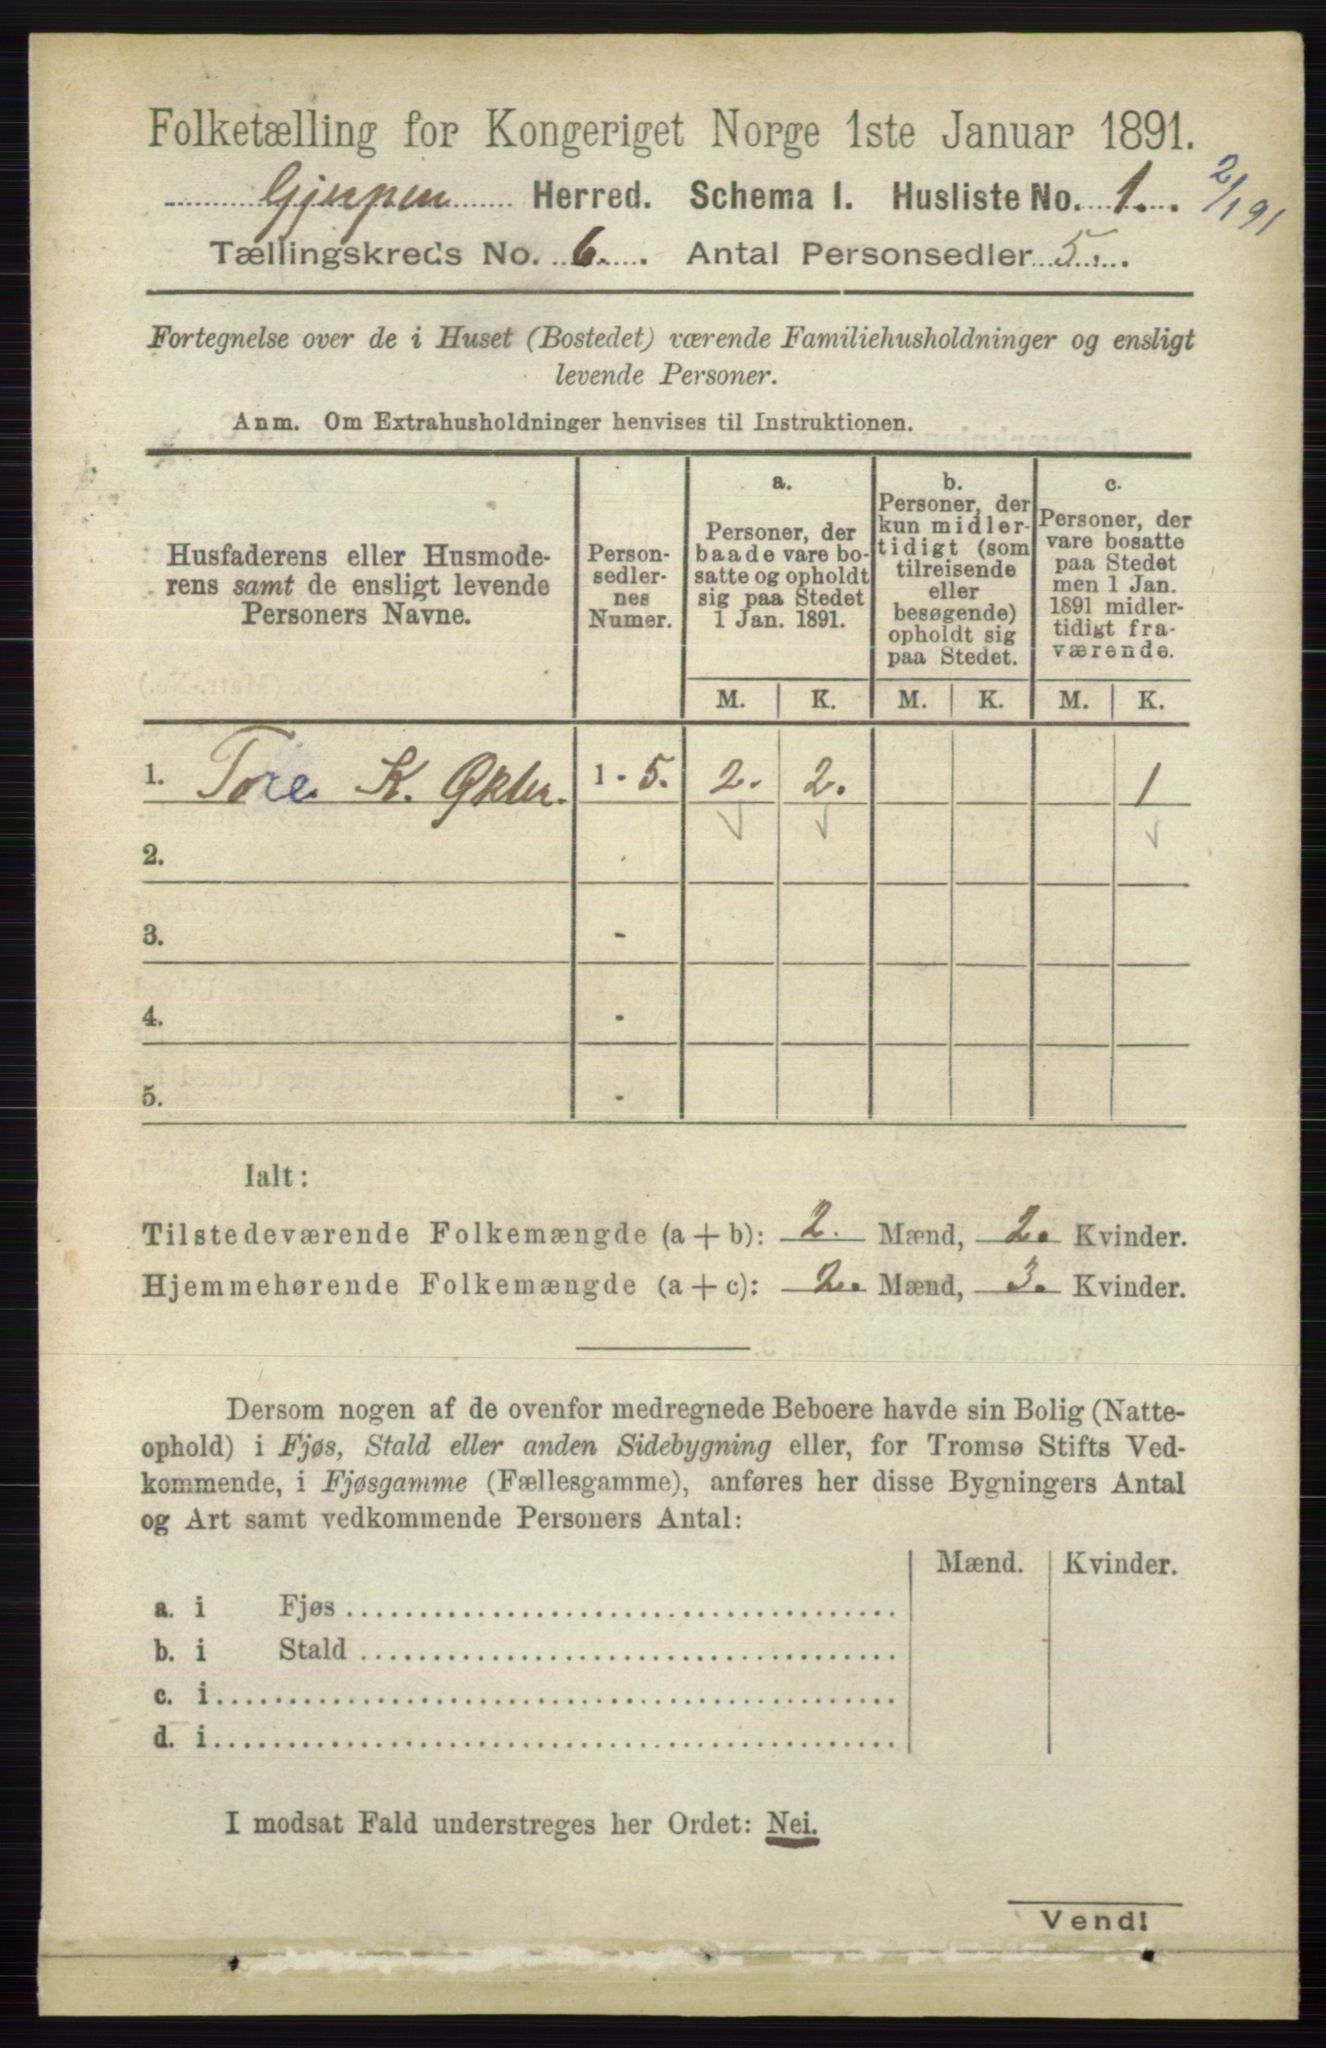 Folketælling for Kongeriget Norge 1ste Januar 1891.
Gjerpen Herred. Schema I. Husliste No. 1. 2/1 91
Tællingskreds No. 6. Antal Personsedler 5.
Fortegnelse over de i Huset (Bostedet) værende Familiehusholdninger og ensligt
levende Personer.
Anm. Om Extrahusholdninger henvises til Instruktionen.
Husfaderens eller Husmode-
rens samt de ensligt levende
Personers Navne.
Person-
sedler-
nes
Numer.
a.
Personer, der
baade vare bo-
satte og opholdt
sig paa Stedet
1 Jan. 1891.
b.
Personer, der
kun midler-
tidigt (som
tilreisende
eller
besøgende)
opholdt sig
paa Stedet.
c.
Personer, der
vare bosatte
paa Stedet
men 1 Jan.
1891 midler-
tidigt fra-
værende.
M. K. M. K. M. K.
1. Tore K. 1 - 5. 2. 2. 1
2.
3. -
4. -
5. -
Ialt:
Tilstedeværende Folkemængde (a + b): 2. Mænd, 2. Kvinder.
Hjemmehørende Folkemængde (a + c): 2. Mænd, 3. Kvinder.
Dersom nogen af de ovenfor medregnede Beboere havde sin Bolig (Natte-
ophold) i Fjøs, Stald eller anden Sidebygning eller, for Tromsø Stifts Ved-
kommende, i Fjøsgamme (Fællesgamme), anføres her disse Bygningers Antal
og Art samt vedkommende Personers Antal:
Mænd. Kvinder.
a. i Fjøs
b. i Stald
c. i
d. i
I modsat Fald understreges her Ordet: Nei.
Vend!